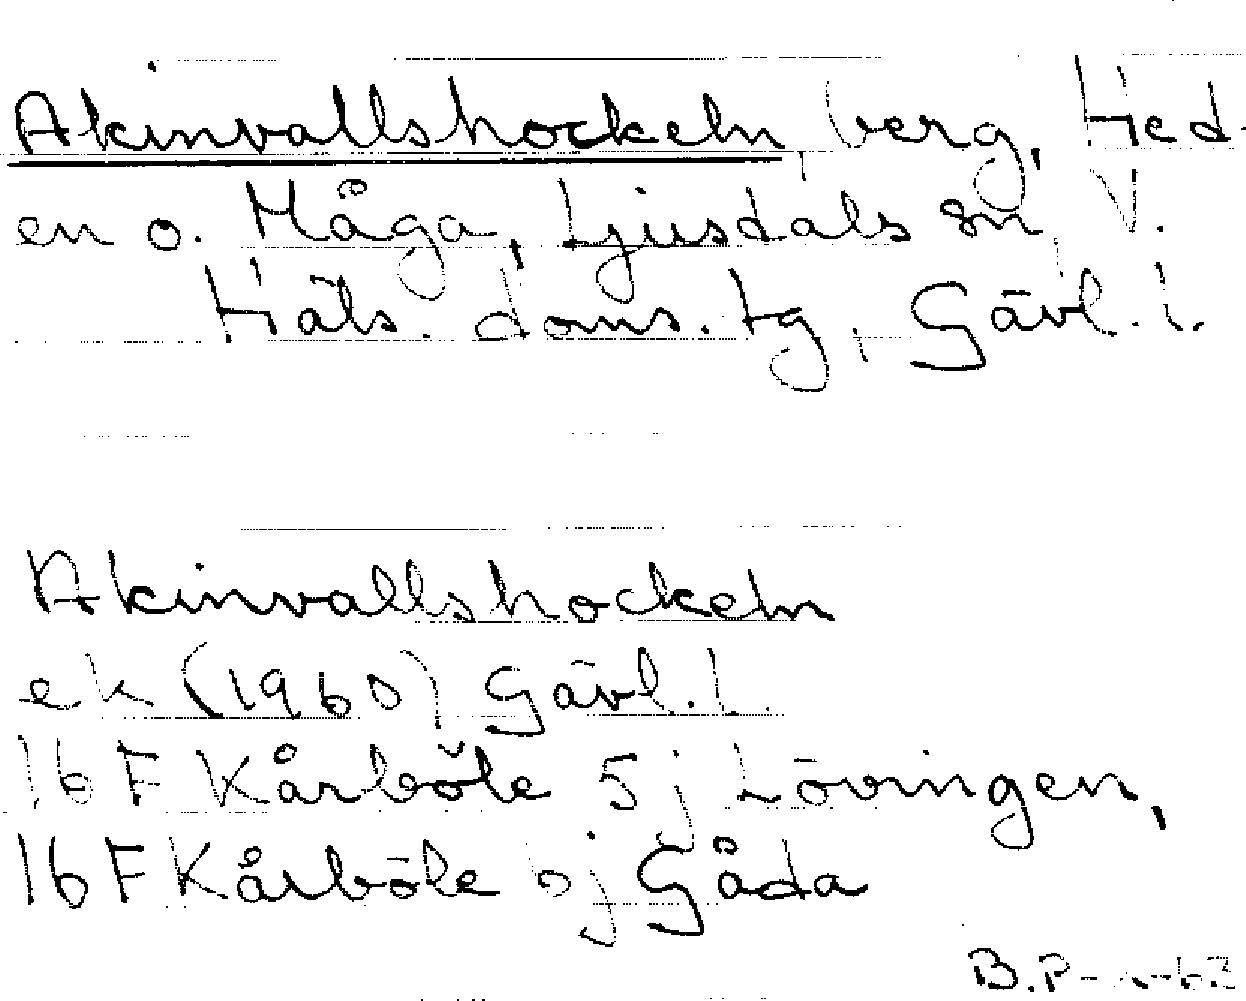 Akinvallshockeln, berg, Hed-
en o. Måga, Ljusdals sn, V.
Häls. doms. tg, Gävl. l.
Akinvallshockeln
ek (1960) Gävl. l.
16 F Kårböle 5 j Lövringen,
16 F Kårböle 6 j Gåda
B.P-